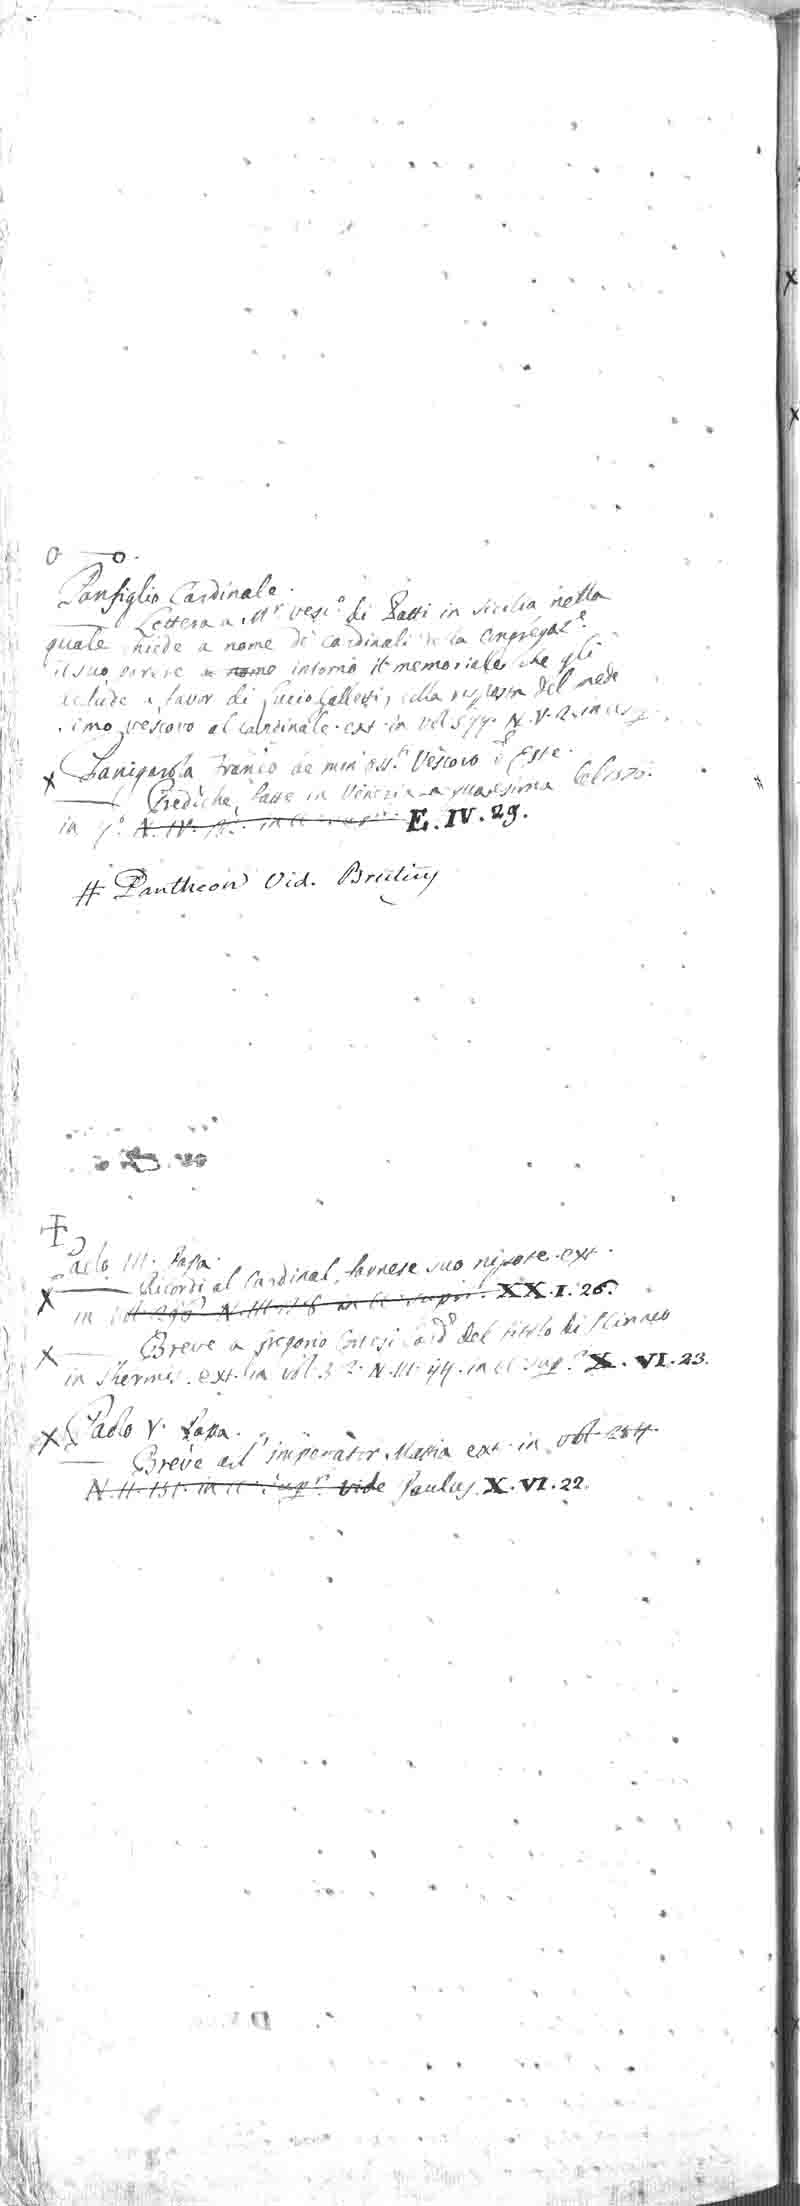 Panfiglio Cardinale.
Lettera a Mr. Vesc.º di Patti in Sicilia nella
quale chiede a nome de Cardinali della Congregaz.e
il suo parere a nome intorno il memoriale che gli
acclude a favor di Lucio Galletti, colla risposta del mede
simo vescovo al Cardinale. ext. in vol 599. N. V. 2. in
X Panigarola Franc.º de min. oss. Vescovo d' Este.
Prediche fatte in Venezia la quaresima
in 4.º N. IV. in cl. supr. E. IV. 29.
# Pantheon Vid. Brutiuȷ
Paolo III. Papa.
X Ricordi al Cardinal Farnese suo nipote. ext.
in vol. N. III. in cl. supr. XX. I. 26.
X Breve a Gregorio Cortesi Card. del titolo di S. Ciriaco
in Thermis. ext. in vol. N. III. 44. in cl. sup.r X. VI. 23.
X Paolo V. Papa.
Breve all' imperator Mattia ext. in vol. 284
N. II. 151. in cl. supr. vide Paulus X. VI. 22.